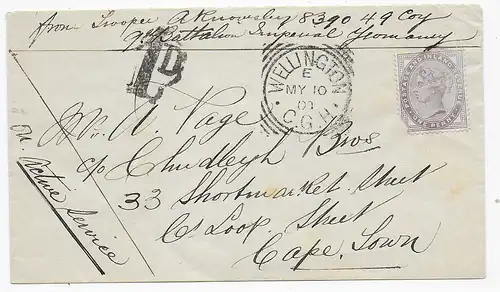 from Trooper A Knowsley 8390 49 Coy
9th Battalion Imperial Yeomanry
1D
WELLINGTON
E
MY 10
01
C.G.H
POSTAGE AND INLAND REVENUE
ONE PENNY
Mr. A. Page
c/o Chudleigh Bros
33 Shortmarket Street
C/s Loop Street
Cape Town
On Active Service